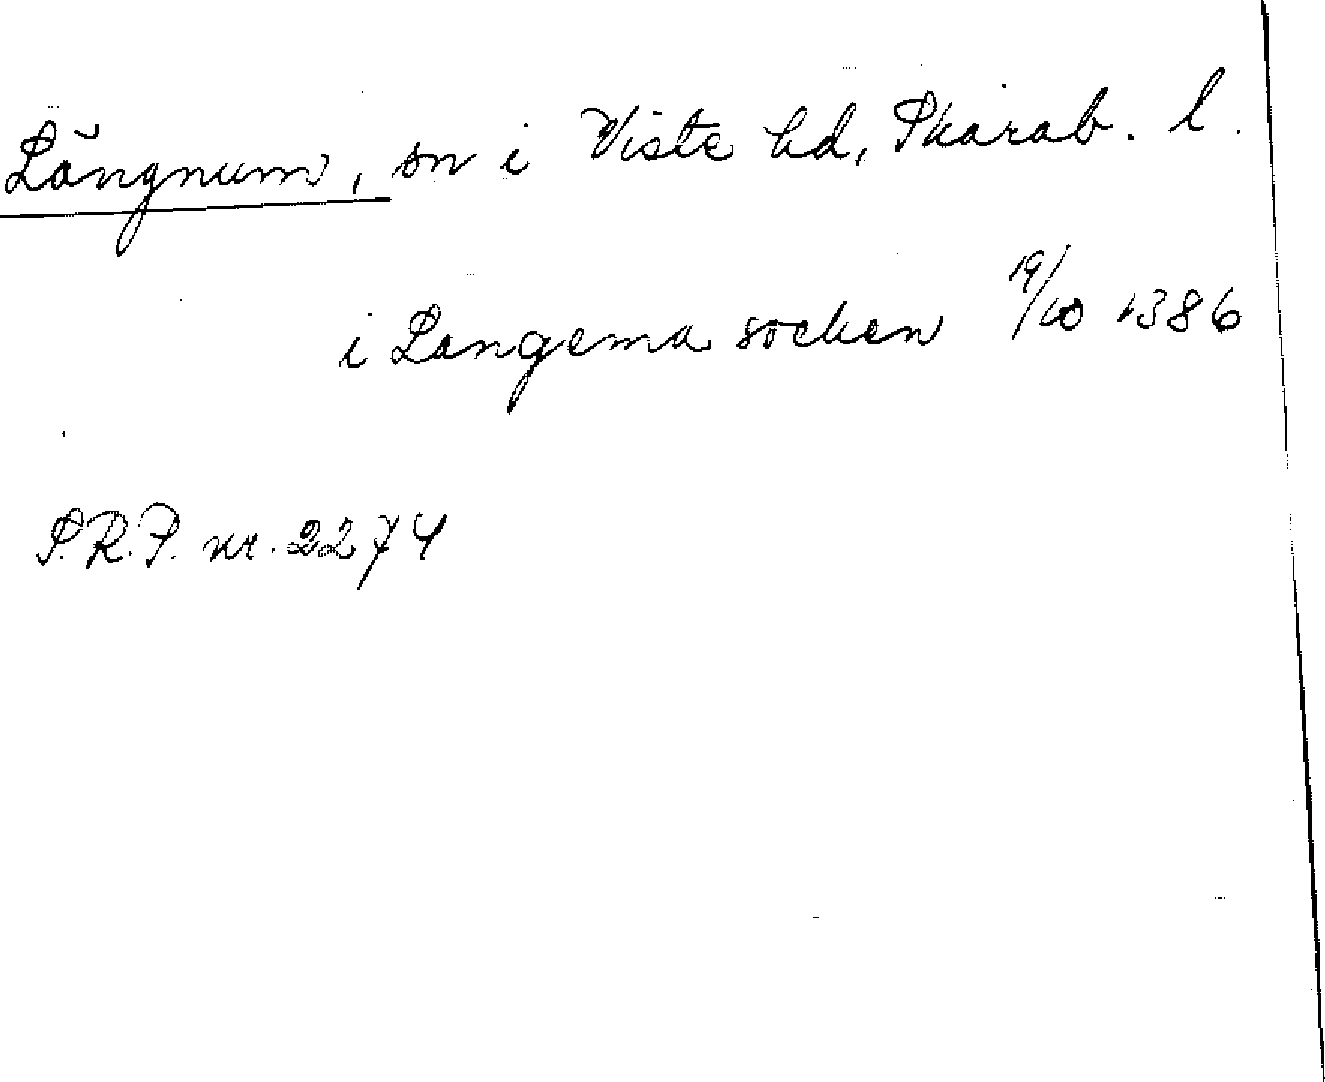 Långnum, sn i Viste hd, Skarab. l.
i Langema socken 19/10 1386
S.R.P. nr. 2274